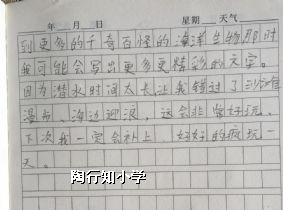 年 月 日 星期 天气
到更多的千奇百怪的海洋生物,那时
我可能会写出更多更精彩的文章。
因为潜水时间太长让我错过了沙滩
漫步、海边迎浪,这会非常好玩,
下次我一定会补上,好好的疯玩一
天。
陶行知小学